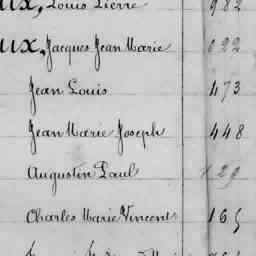 ux, Louis Pierre 982
ux, Jacques Jean Marie 022
Jean Louis 473
Jean Marie Joseph 448
Augustin Paul 129
Charles Marie Vincent 165